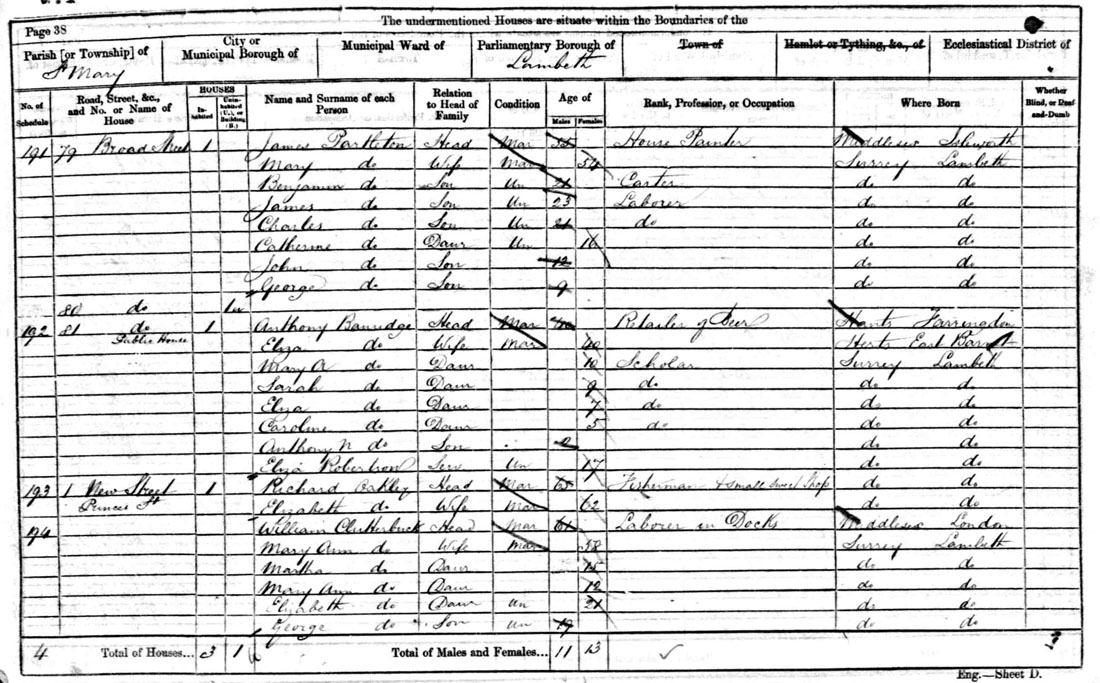 The undermentioned Houses are situate within the Boundaries of the
Page 38
Parish [or Township] of City or Municipal Borough of Municipal Ward of Parliamentary Borough of Town of Hamlet or Tything, &c., of Ecclesiastical District of
St Mary Lambeth
No. of Schedule Road, Street, &c., and No. or Name of House HOUSES Inhabited Uninhabited (U.), or Building (B.) Name and Surname of each Person Relation to Head of Family Condition Age of Males Females Rank, Profession, or Occupation Where Born Whether Blind, or Deaf-and-Dumb
191 79 Broad Street 1 James Partleton Head Mar 55 House Painter Middlesex Isleworth
Mary do Wife Mar 54 Surrey Lambeth
Benjamin do Son Un Carter do do
James do Son Un 23 Laborer do do
Charles do Son Un 21 do do do
Catherine do Daur Un 16 do do
John do Son 12 do do
George do Son 9 do do
80 do 1u
192 81 do 1 Anthony Head Mar 40 Retailer of Beer Hants Farringdon
Public House Eliza do Wife Mar 40 Herts East Barnet
Mary A do Daur 10 Scholar Surrey Lambeth
Sarah do Daur 9 do do do
Eliza do Daur 7 do do do
Caroline do Daur 5 do do do
Anthony N do Son 2 do do
Eliza Robertson Serv Un 17 do do
193 1 New Street 1 Richard Oakley Head Mar 65 Fisherman & small sweet Shop do do
Princes St Elizabeth do Wife Mar 62 do do
194 William Clutterbuck Head Mar 61 Laborer in Docks Middlesex London
Mary Ann do Wife Mar 58 Surrey Lambeth
Martha do Daur 15 do do
Mary Ann do Daur 12 do do
Elizabeth do Daur Un 21 do do
George do Son Un 19 do do
4 Total of Houses... 3 1 Total of Males and Females... 11 13
Eng.—Sheet D.